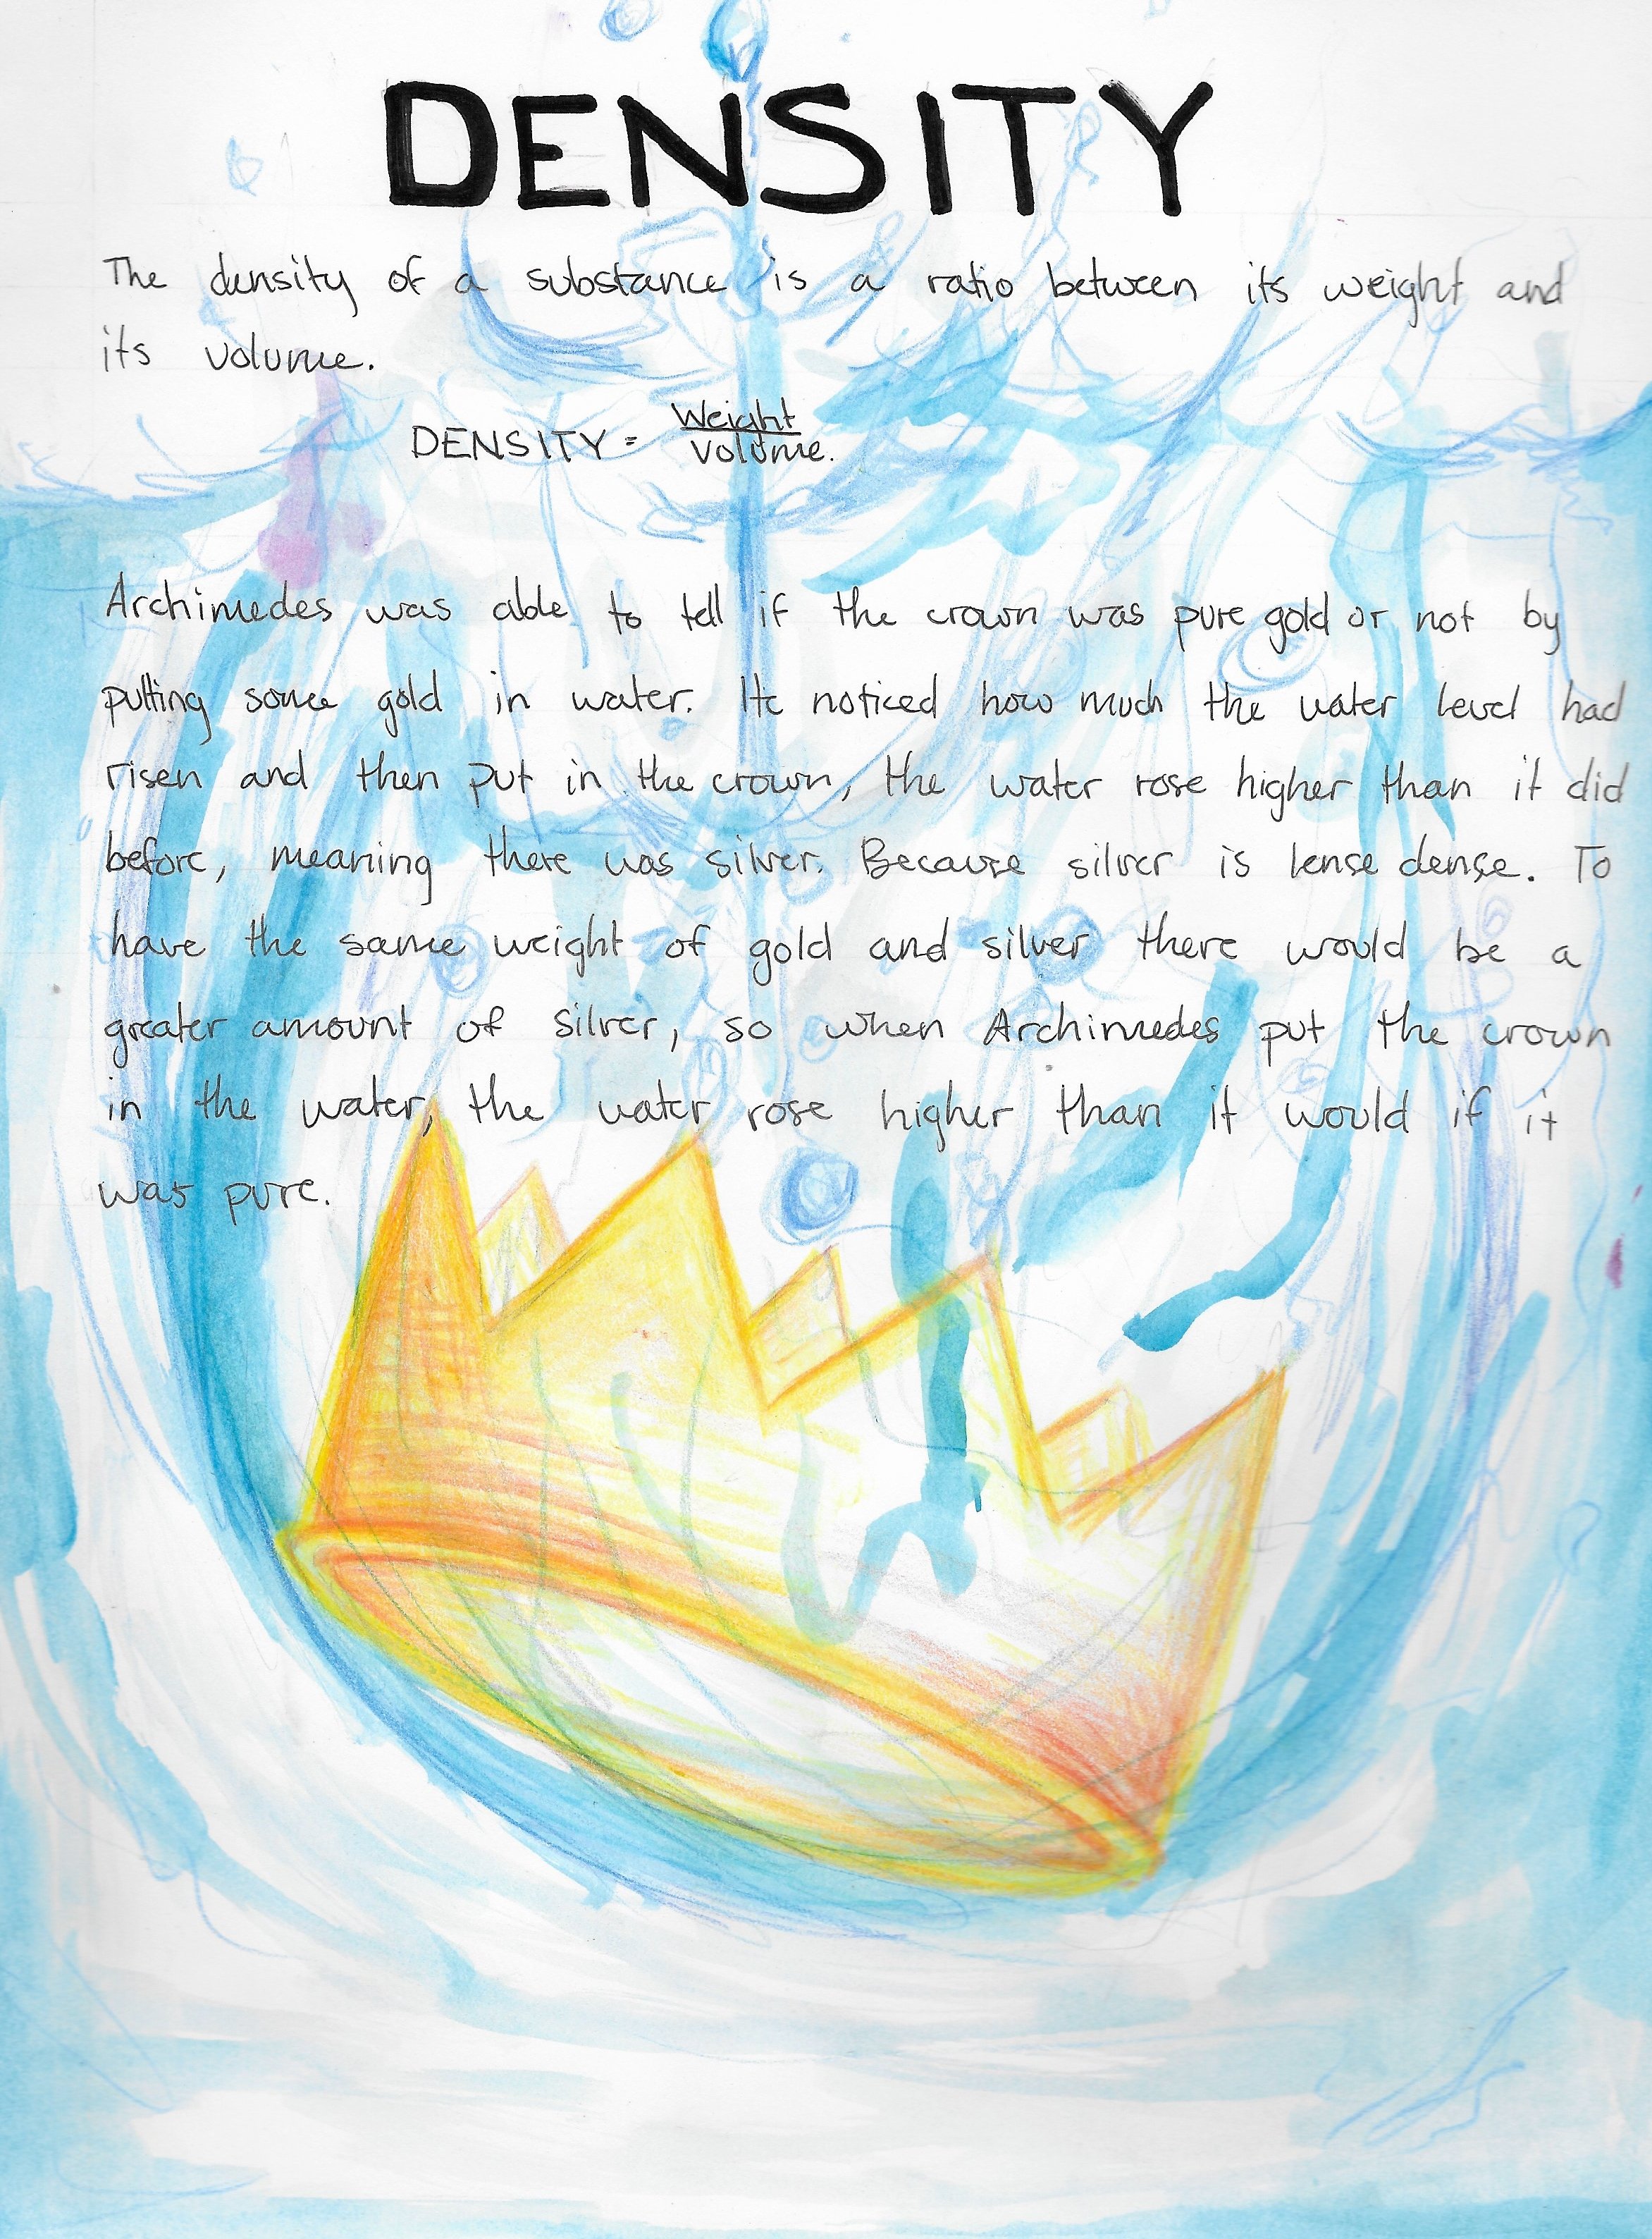 DENSITY
The density of a substance is a ratio between its weight and
its volume.
DENSITY = Weight
Volume.
Archimedes was able to tell if the crown was pure gold or not by
putting some gold in water. He noticed how much the water level had
risen and then put in the crown, the water rose higher than it did
before, meaning there was silver. Because silver is lense dense. To
have the same weight of gold and silver there would be a
greater amount of silver, so when Archimedes put the crown
in the water, the water rose higher than it would if it
was pure.